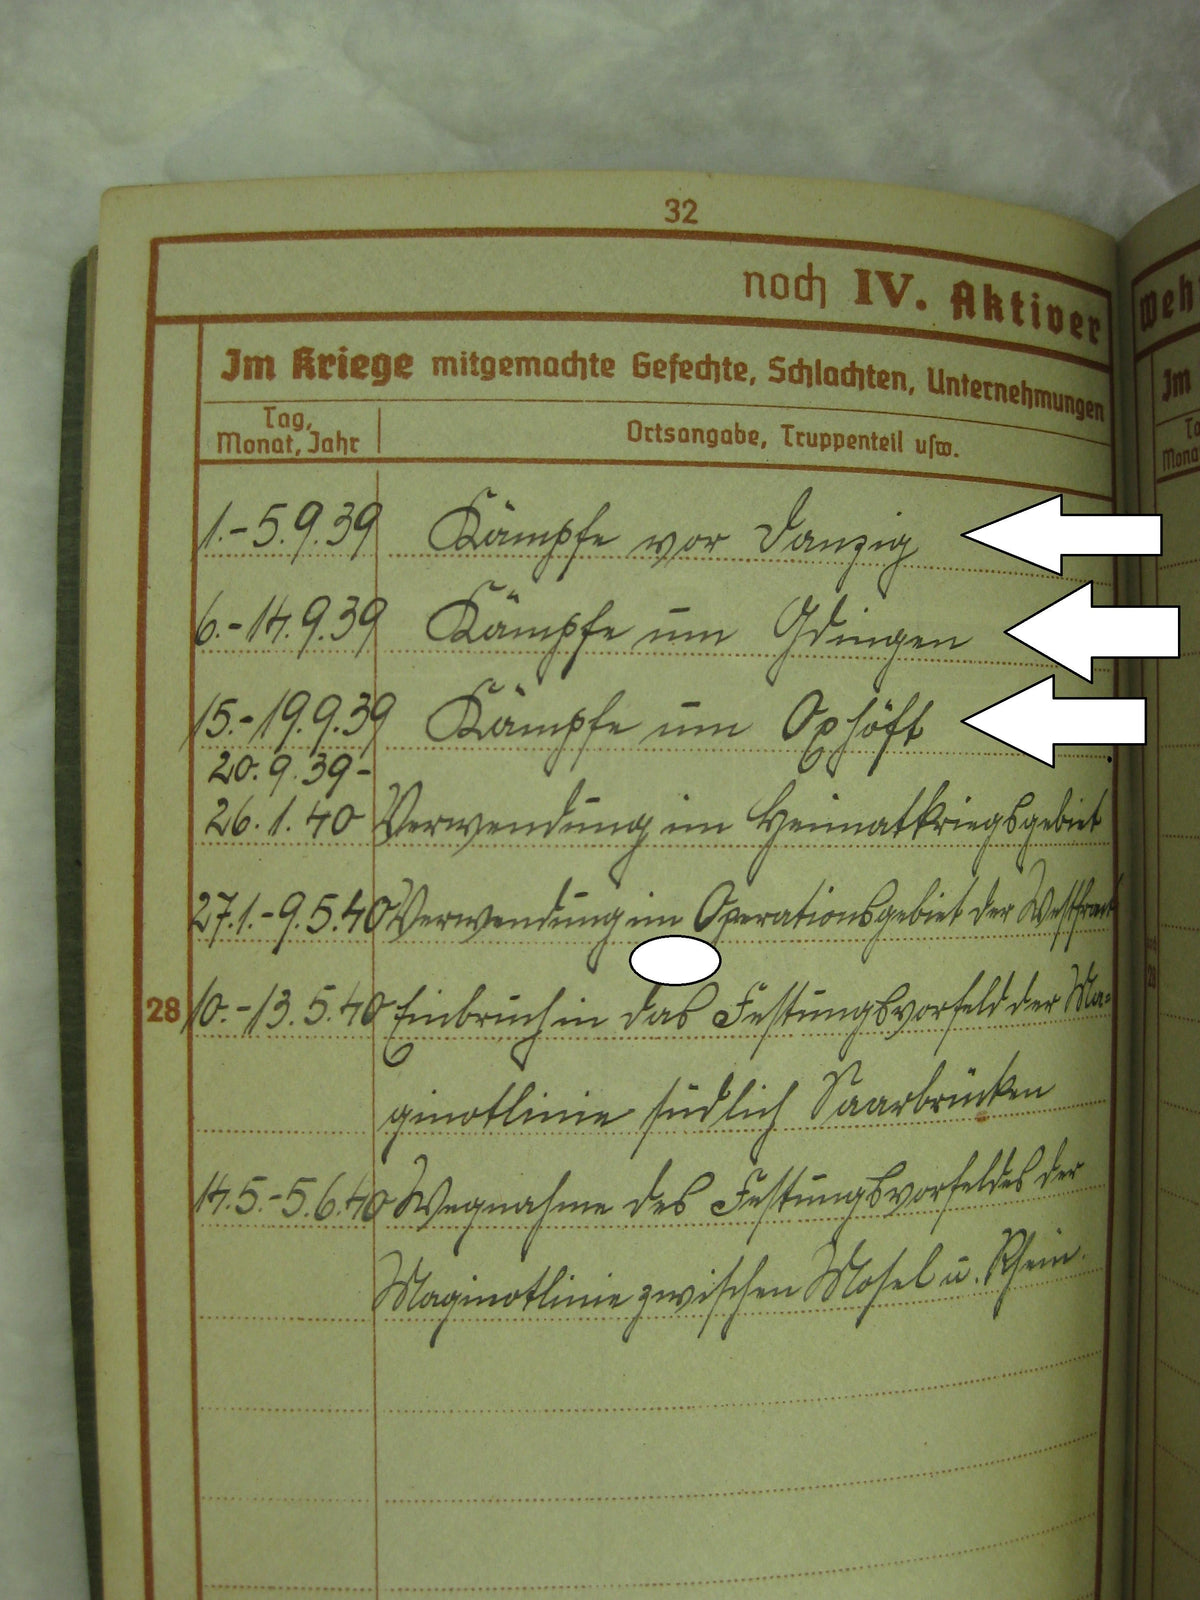 32
noch IV. Aktiver
Im Kriege mitgemachte Gefechte, Schlachten, Unternehmungen
Tag, Monat, Jahr
Ortsangabe, Truppenteil usw.
1.-5.9.39 Kämpfe vor Danzig
6.-14.9.39 Kämpfe um Gdingen
15.-19.9.39 Kämpfe um Oxhöft
20.9.39-
26.1.40 Verwendung im Heimatkriegsgebiet
27.1.-9.5.40 Verwendung im Operationsgebiet der Westfront
28 10.-13.5.40 Einbruch in das Festungsvorfeld der Ma=
ginotlinie südlich Saarbrücken
14.5.-5.6.40 Wegnahme des Festungsvorfeldes der
Maginotlinie zwischen Mosel u. Rhein.
Weh
Im
28